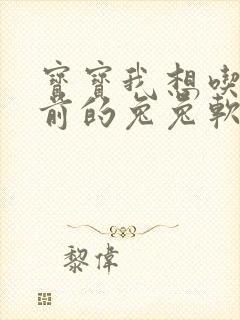 寶寶我想喫
前的兔兔軟
黎偉